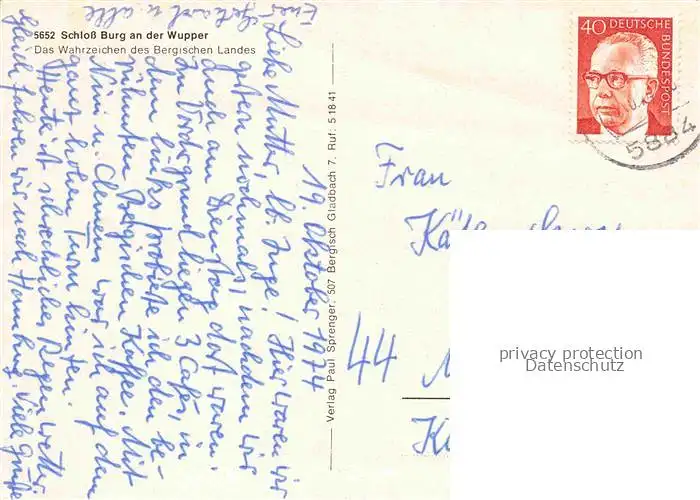 5652 Schloß Burg an der Wupper
Das Wahrzeichen des Bergischen Landes
19. Oktober 1974
Liebe Mutter, lb. Inge! Hier waren wir
gestern nochmals, nachdem wir
auch am Dienstag dort waren.
Im Vordergrund liegen 3 Cafés, in
dem links probierte ich den be-
rühmten Bergischen Kaffee. Mit
Nini u. Clemens war ich auf dem
ganz hohen Turm hinten.
Heute ist schreckliches Regenwetter
Gleich fahren wir nach Hamburg. Viele Grüße
Eure Gerhard u. alle
Verlag Paul Sprenger, 507 Bergisch Gladbach 7, Ruf: 5 18 41
40 DEUTSCHE BUNDESPOST
Frau
44
privacy protection
Datenschutz